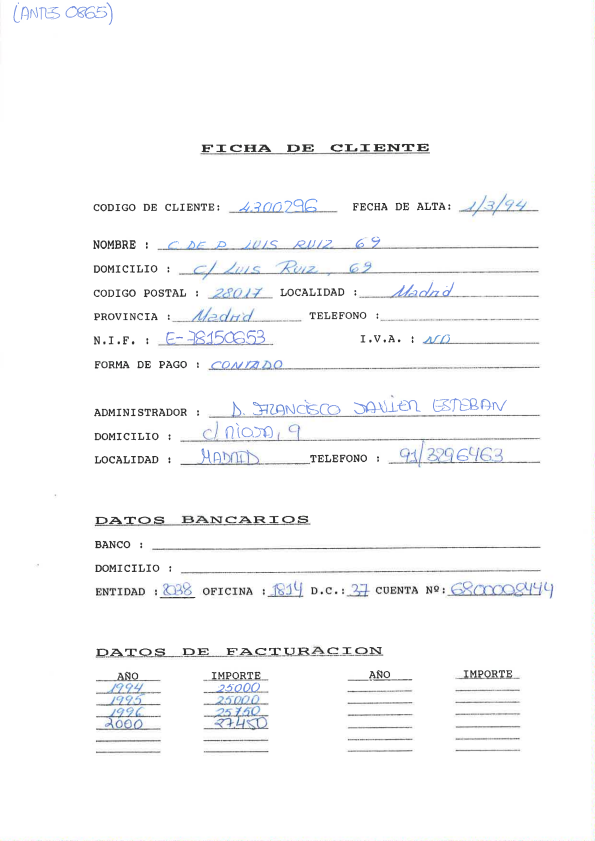 (ANTES 0865)
FICHA DE CLIENTE
CODIGO DE CLIENTE: 4300296 FECHA DE ALTA: 1/3/94
NOMBRE : C DE P. LUIS RUIZ 69
DOMICILIO : C/ LUIS RUIZ, 69
CODIGO POSTAL : 28017 LOCALIDAD : Madrid
PROVINCIA : Madrid TELEFONO :
N.I.F. : E-78150653 I.V.A. : NO
FORMA DE PAGO : CONTADO
ADMINISTRADOR : D. FRANCISCO JAVIER ESTEBAN
DOMICILIO : C/ RIOJA, 9
LOCALIDAD : MADRID TELEFONO : 91/3296463
DATOS BANCARIOS
BANCO :
DOMICILIO :
ENTIDAD : 2038 OFICINA : 1814 D.C.: 37 CUENTA Nº: 6800008444
DATOS DE FACTURACION
AÑO IMPORTE AÑO IMPORTE
1994 25000
1995 25000
1996 25750
2000 27450